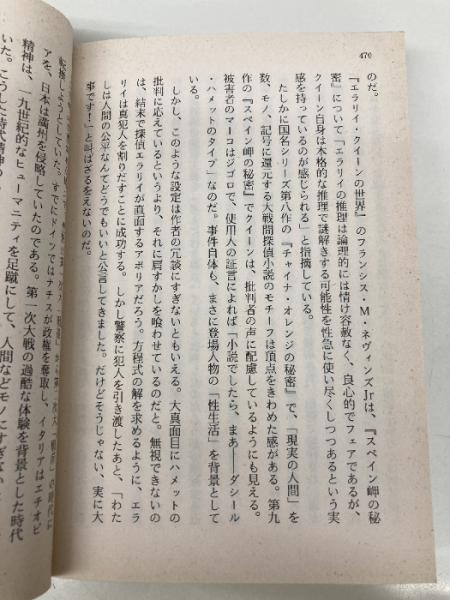 470
のだ。
『エラリイ・クイーンの世界』のフランシス・M・ネヴィンズJrは、『スペイン岬の秘
密』について「エラリイの推理は論理的には情け容赦なく、良心的でフェアであるが、
クイーン自身は本格的な推理で謎解きする可能性を性急に使い尽くしつつあるという実
感を持っているのが感じられる」と指摘している。
たしかに国名シリーズ第八作の『チャイナ・オレンジの秘密』で、「現実の人間」を
数、モノ、記号に還元する大戦間探偵小説のモチーフは頂点をきわめた感がある。第九
作の『スペイン岬の秘密』でクイーンは、批判者の声に配慮しているようにも見える。
被害者のマーコはジゴロで、使用人の証言によれば「小説でしたら、まあ――ダシール
・ハメットのタイプ」なのだ。事件自体も、まさに登場人物の「性生活」を背景として
いる。
しかし、このような設定は作者の冗談にすぎないともいえる。大真面目にハメットの
批判に応えているというより、それに肩すかしを喰わせているのだと。無視できないの
は、結末で探偵エラリイが直面するアポリアだろう。方程式の解を求めるように、エラ
リイは真犯人を割りだすことに成功する。しかし警察に犯人を引き渡したあと、「わた
しは人間の公平なんてどうでもいいと公言してきました。だけどそうじゃない、実に大
事です！」と叫ばざるをえないのだ。
転換しようとしていた。すでにドイツではナチスが政権を奪取し、イタリアはエチオピ
アを、日本は満州を侵略していたのである。第一次大戦の過酷な体験を背景とした時代
精神は、一九世紀的なヒューマニティを足蹴にして、人間などモノにすぎない
いた。こうした時代精神の